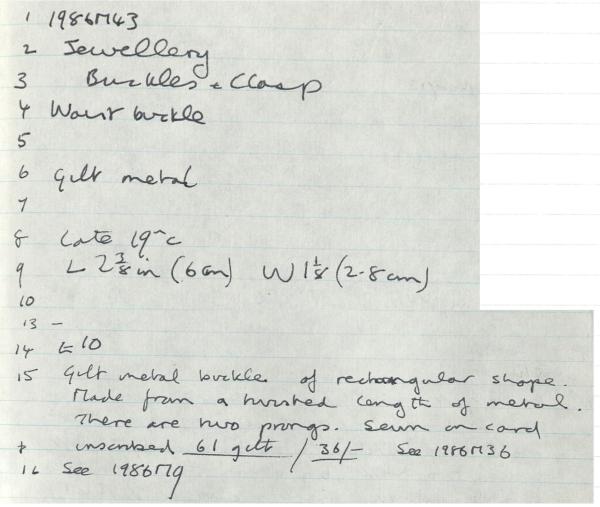 1 1986M43
2 Jewellery
3 Buckles + Clasp
4 Waist buckle
5
6 Gilt metal
7
8 Late 19th c
9 L 2 3/8 in (6cm) W 1 1/8 (2.8cm)
10
13 -
14 £10
15 Gilt metal buckle of rectangular shape.
Made from a twisted length of metal.
There are two prongs. Sewn on card
inscribed 61 gilt / 36/- See 1986M36
16 See 1986M9